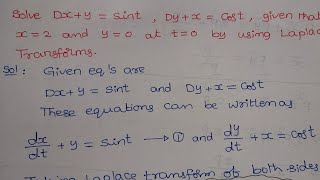 Solve Dx+y = sint , Dy+x = Cost , given that
x=2 and y=0 at t=0 by using Laplac
Transforms.
Sol: Given eq's are
Dx+y = sint and Dy+x = cost
These equations can be written as
dx/dt + y = sint → ① and dy/dt + x = cost
Laplace transform of both sides